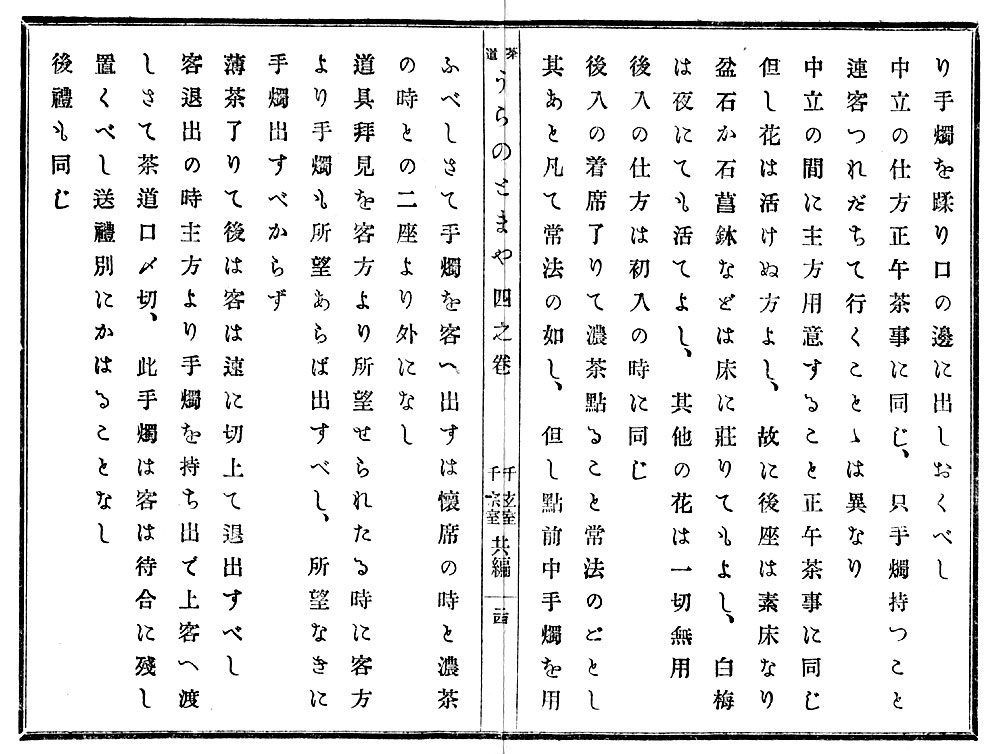 り手燭を蹂り口の邊に出しおくべし
中立の仕方正午茶事に同じ、只手燭持つことと
連客つれだちて行くことゝは異なり
中立の間に主方用意すること正午茶事に同じ
但し花は活けぬ方よし、故に後座は素床なり
盆石か石菖鉢などは床に莊りてもよし、白梅
は夜にても活てよし、其他の花は一切無用
後入の仕方は初入の時に同じ
後入の着席了りて濃茶點ること常法のごとし
其あと凡て常法の如し、但し點前中手燭を用
茶道 うらのとまや 四之卷
千玄室 千宗室 共編
ふべしさて手燭を客へ出すは懷席の時と濃茶
の時との二座より外になし
道具拜見を客方より所望せられたる時に客方
より手燭も所望あらば出すべし、所望なきに
手燭出すべからず
薄茶了りて後は客は速に切上て退出すべし
客退出の時主方より手燭を持ち出で上客へ渡
しさて茶道口〆切、此手燭は客は待合に殘し
置くべし送禮別にかはることなし
後禮も同じ